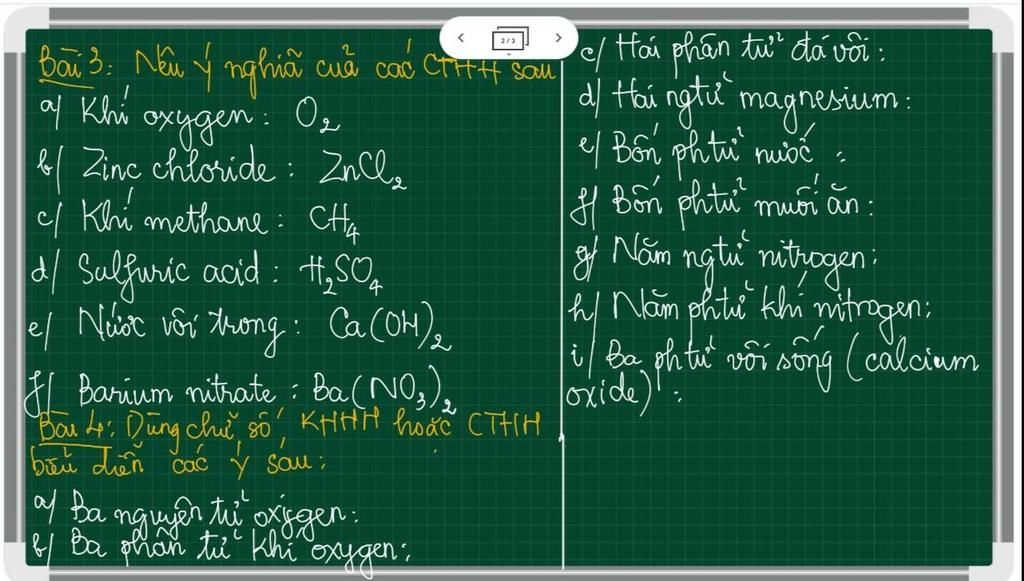 2/3
Bài 3: Nêu ý nghĩa của các CTHH sau
a/ Khí oxygen: O₂
b/ Zinc chloride: ZnCl₂
c/ Khí methane: CH₄
d/ Sulfuric acid: H₂SO₄
e/ Nước vôi trong: Ca(OH)₂
f/ Barium nitrate: Ba(NO₃)₂
Bài 4: Dùng chữ số, KHHH hoặc CTHH
biểu diễn các ý sau:
a/ Ba nguyên tử oxygen:
b/ Ba phân tử khí oxygen:
c/ Hai phân tử đá vôi:
d/ Hai ngtử magnesium:
e/ Bốn phtử nước:
f/ Bốn phtử muối ăn:
g/ Năm ngtử nitrogen:
h/ Năm phtử khí nitrogen:
i/ Ba phtử vôi sống (calcium
oxide):